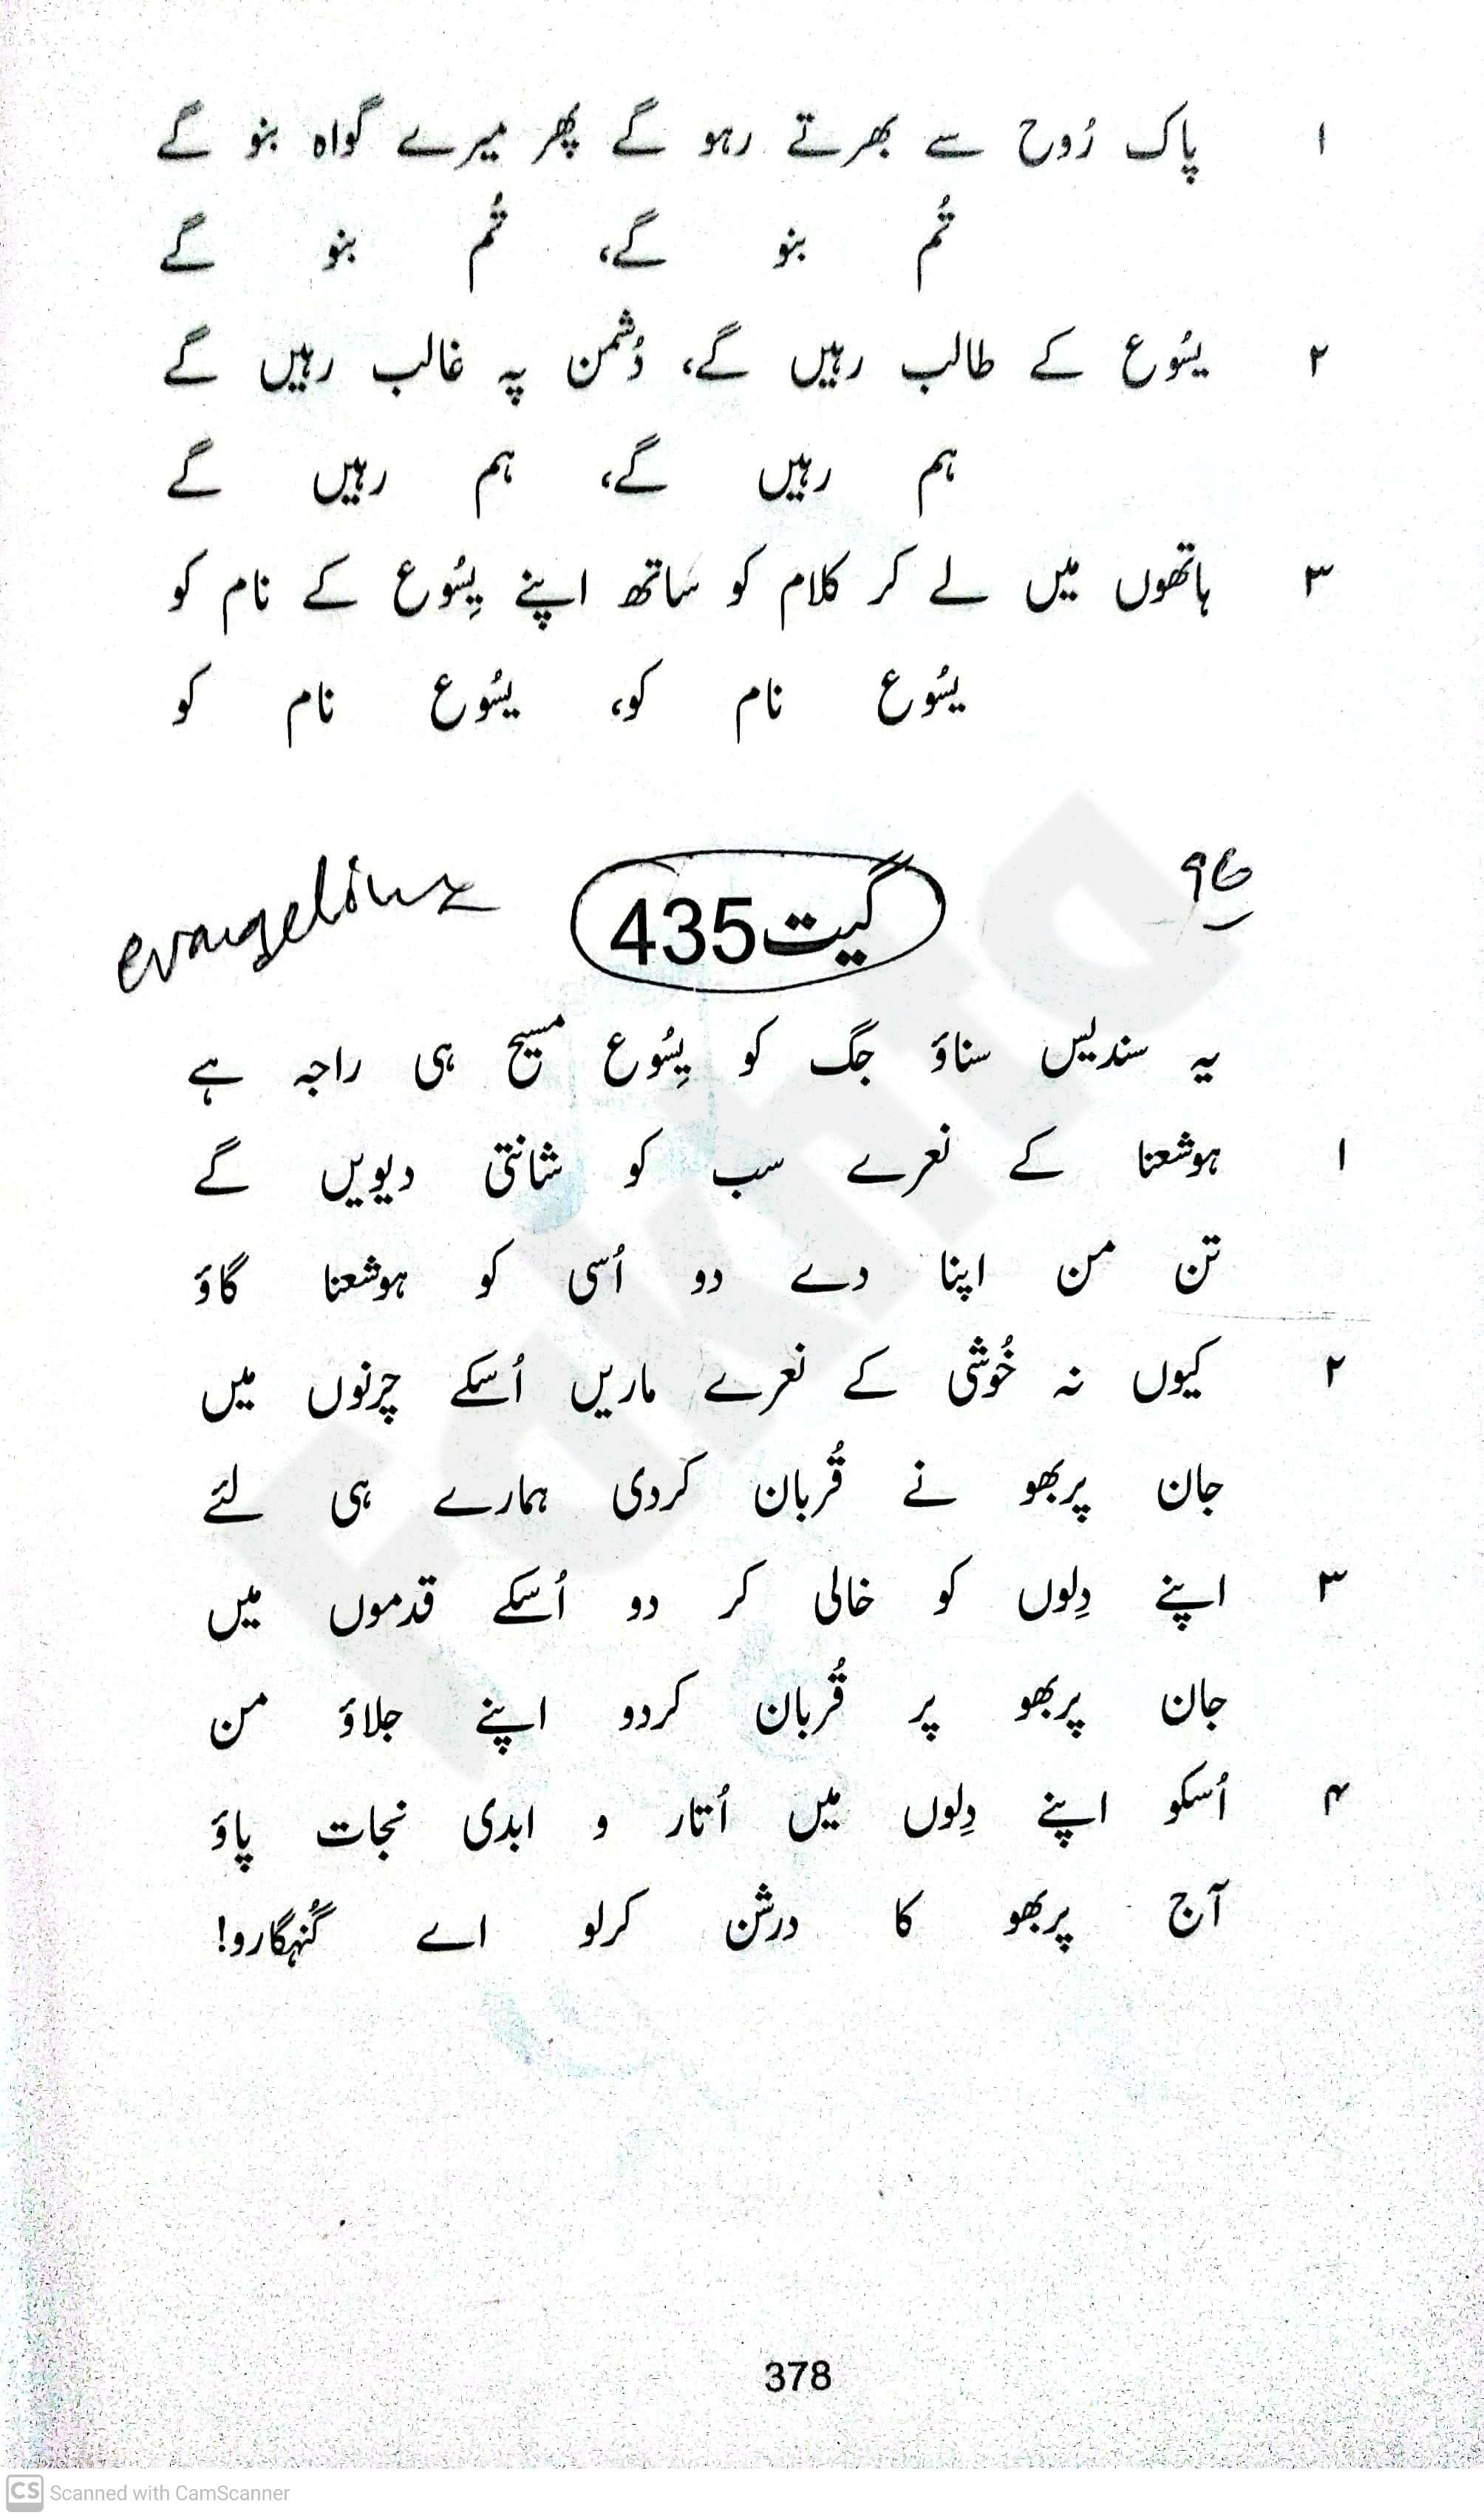 ۱ پاک رُوح سے بھرتے رہو گے پھر میرے گواہ بنو گے
تُم بنو گے، تُم بنو گے
۲ یسُوع کے طالب رہیں گے، دُشمن پہ غالب رہیں گے
ہم رہیں گے، ہم رہیں گے
۳ ہاتھوں میں لے کر کلام کو ساتھ اپنے یِسُوع کے نام کو
یسُوع نام کو، یسُوع نام کو
96
گیت 435
evangeline
یہ سندیس سناؤ جگ کو یِسُوع مسیح ہی راجہ ہے
۱ ہوشعنا کے نعرے سب کو شانتی دیویں گے
تن من اپنا دے دو اُسی کو ہوشعنا گاؤ
۲ کیوں نہ خُوشی کے نعرے ماریں اُسکے چرنوں میں
جان پربھو نے قُربان کردی ہمارے ہی لئے
۳ اپنے دِلوں کو خالی کر دو اُسکے قدموں میں
جان پربھو پر قُربان کردو اپنے جلاؤ من
۴ اُسکو اپنے دِلوں میں اُتار و ابدی نجات پاؤ
آج پربھو کا درشن کرلو اے گُنہگارو!
378
CS Scanned with CamScanner